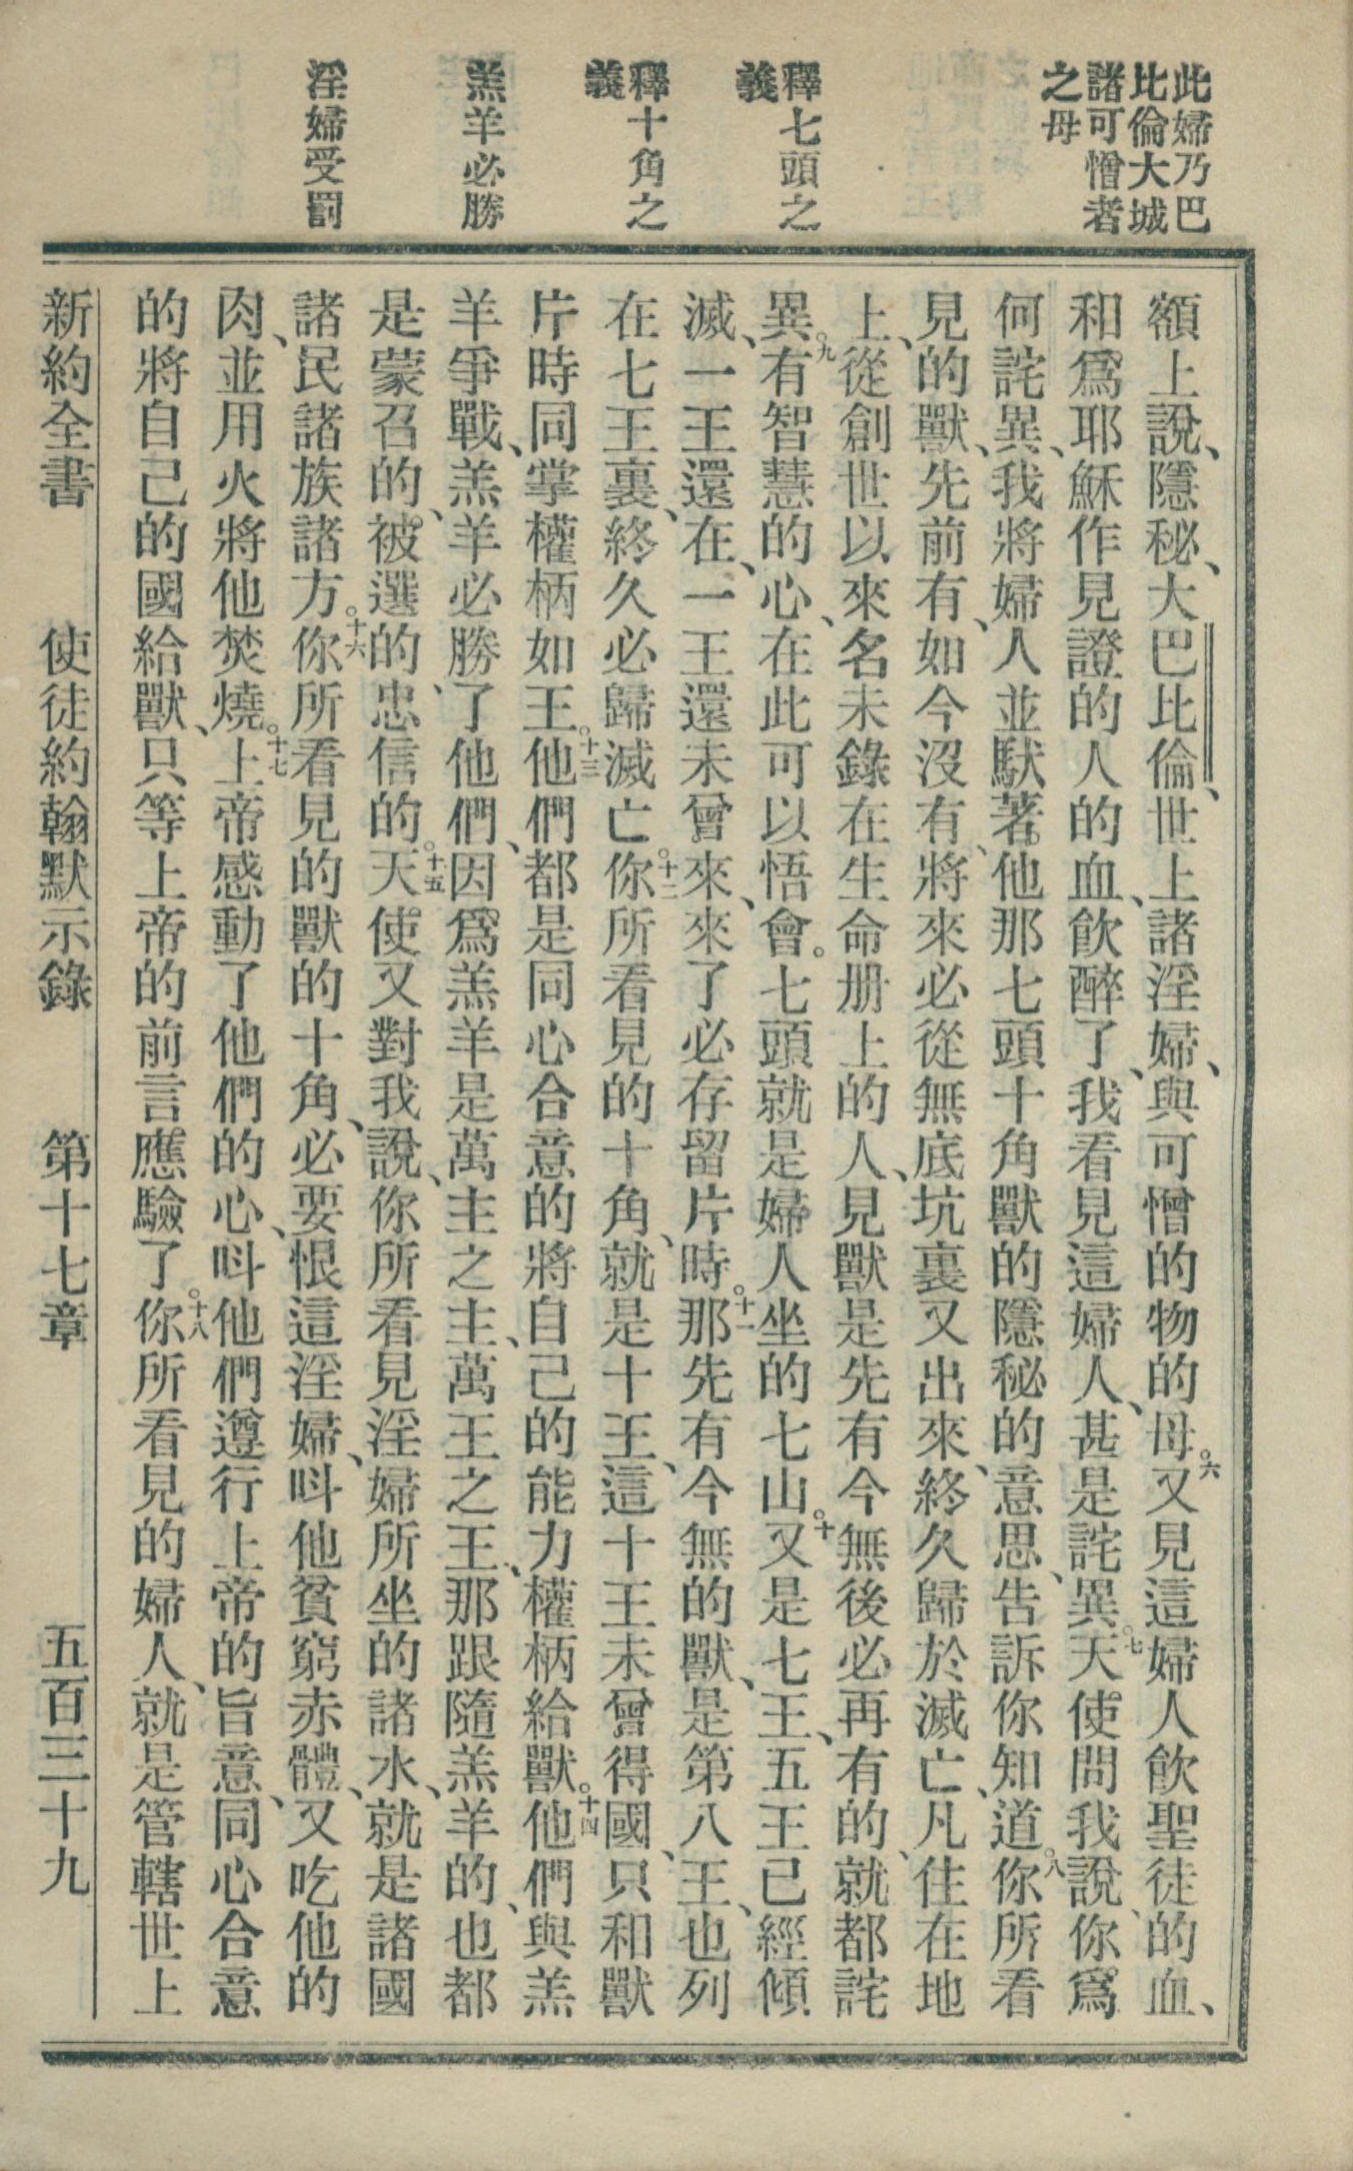 此婦乃巴
比倫大城
諸可憎者
之母
釋七頭之
義
釋十角之
義
羔羊必勝
淫婦受罰
額上說、隱秘、大巴比倫、世上諸淫婦、與可憎的物的母。六又見這婦人飲聖徒的血、
和爲耶穌作見證的人的血、飲醉了、我看見這婦人、甚是詫異。七天使問我說、你爲
何詫異、我將婦人並馱著他那七頭十角獸的隱秘的意思、告訴你知道。八你所看
見的獸、先前有、如今沒有、將來必從無底坑裏又出來、終久歸於滅亡、凡住在地
上、從創世以來名未錄在生命册上的人、見獸是先有今無後必再有的、就都詫
異。九有智慧的心、在此可以悟會。七頭就是婦人坐的七山。十又是七王、五王已經傾
滅、一王還在、一王還未曾來、來了必存留片時。十一那先有今無的獸、是第八王、也列
在七王裏、終久必歸滅亡。十二你所看見的十角、就是十王、這十王未曾得國、只和獸
片時同掌權柄如王。十三他們都是同心合意的將自己的能力權柄給獸。十四他們與羔
羊爭戰、羔羊必勝了他們、因爲羔羊是萬主之主、萬王之王、那跟隨羔羊的、也都
是蒙召的、被選的、忠信的。十五天使又對我說、你所看見淫婦所坐的諸水、就是諸國
諸民諸族諸方。十六你所看見的獸的十角、必要恨這淫婦、呌他貧窮赤體、又吃他的
肉、並用火將他焚燒。十七上帝感動了他們的心、呌他們遵行上帝的旨意、同心合意
的將自己的國給獸、只等上帝的前言應驗了。十八你所看見的婦人、就是管轄世上
新約全書　使徒約翰默示錄　第十七章　五百三十九